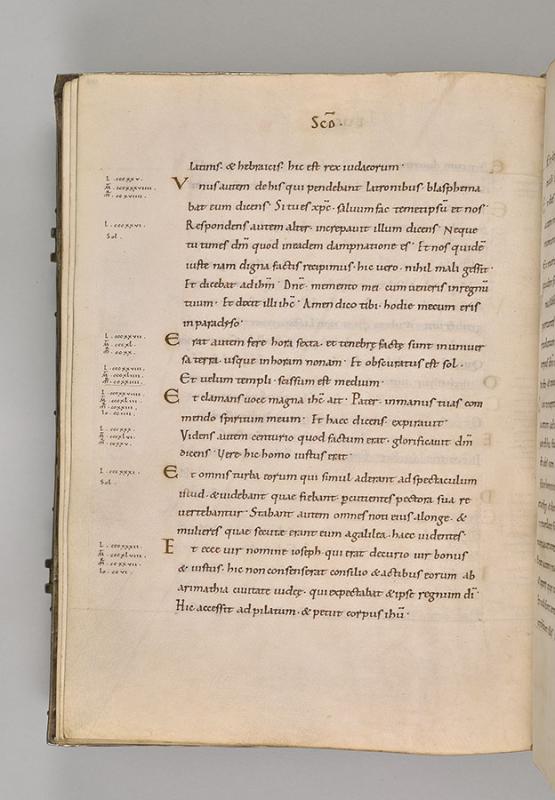 Scd̄m.
latinis. & hebraicis. hic est rex iudaeorum.
Vnus autem de his qui pendebant latronibus. blasphema
bat eum dicens. Si tu es xp̄c. saluum fac temetipsū et nos.
Respondens autem alter. increpauit illum dicens. Neque
tu times dm̄ quod in eadem dampnatione es. Et nos quidē
iuste nam digna factis recipimus. hic uero. nihil mali gessit.
Et dicebat ad ihm̄. Dn̄e. memento mei cum ueneris in regnū
tuum. Et dixit illi ihc̄. Amen dico tibi. hodie mecum eris
in paradyso.
Erat autem fere hora sexta. et tenebrę factę sunt in uniuer
sa terra. usque in horam nonam. Et obscuratus est sol.
Et uelum templi. scissum est medium.
Et clamans uoce magna ihc̄ ait. Pater. in manus tuas com
mendo spiritum meum. Et haec dicens. expirauit.
Videns autem centurio quod factum erat. glorificauit dm̄
dicens. Vere. hic homo iustus erat.
Et omnis turba eorum qui simul aderant ad spectaculum
istud. & uidebant quae fiebant. percutientes pectora sua re
uertebantur. Stabant autem omnes noti eius. a longe. &
mulieres quae secutae erant eum a galilea. haec uidentes.
Et ecce uir nomine ioseph. qui erat decurio uir bonus
& iustus. hic non consenserat consilio & actibus eorum ab
arimathia ciuitate iudeę. qui expectabat & ipse regnum dī.
Hic accessit ad pilatum. & petiit corpus ihū.